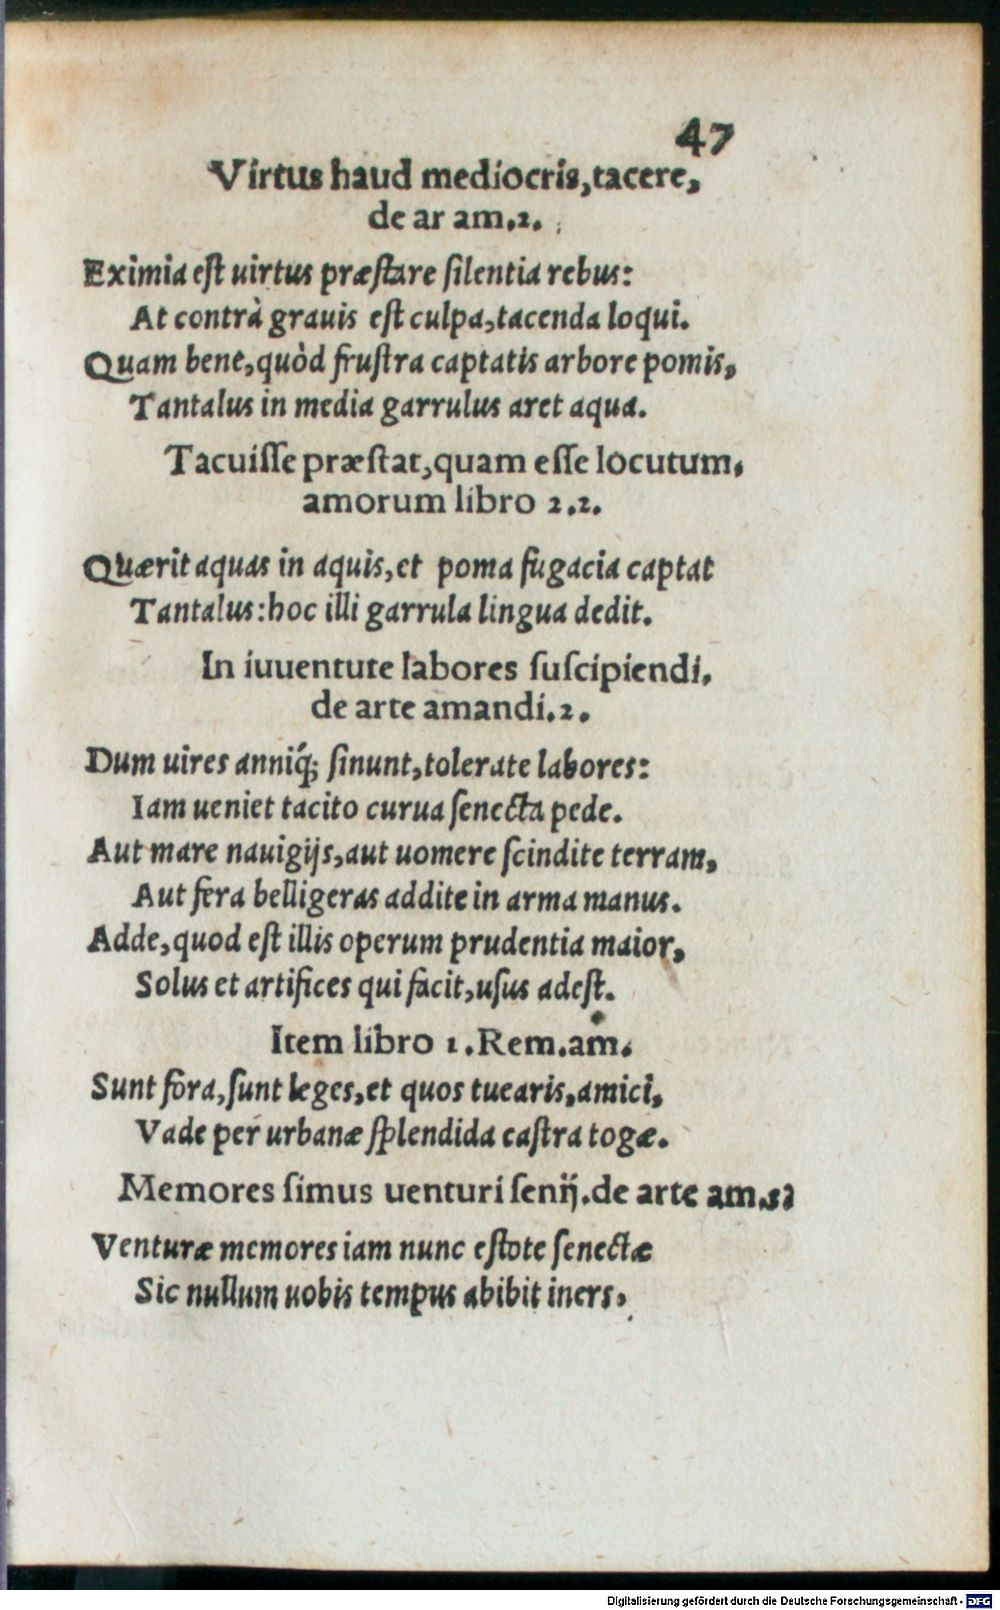 47
Virtus haud mediocris, tacere,
de ar am.2.
Eximia eſt uirtus præſtare ſilentia rebus:
At contrà grauis eſt culpa, tacenda loqui.
Quam bene, quòd fruſtra captatis arbore pomis,
Tantalus in media garrulus aret aqua.
Tacuiſſe præſtat, quam eſſe locutum.
amorum libro 2.2.
Quærit aquas in aquis, et poma fugacia captat
Tantalus: hoc illi garrula lingua dedit.
In iuuentute labores ſuſcipiendi.
de arte amandi.2.
Dum uires anniq́; ſinunt, tolerate labores:
Iam ueniet tacito curua ſenecta pede.
Aut mare nauigijs, aut uomere ſcindite terram,
Aut fera belligeras addite in arma manus.
Adde, quod eſt illis operum prudentia maior,
Solus et artifices qui facit, uſus adeſt.
Item libro 1. Rem. am.
Sunt fora, ſunt leges, et quos tuearis, amici,
Vade per urbanæ ſplendida caſtra togæ.
Memores ſimus uenturi ſenij. de arte am.
Venturæ memores iam nunc eſtote ſenectæ
Sic nullum uobis tempus abibit iners.
Digitalisierung gefördert durch die Deutsche Forschungsgemeinschaft - DFG